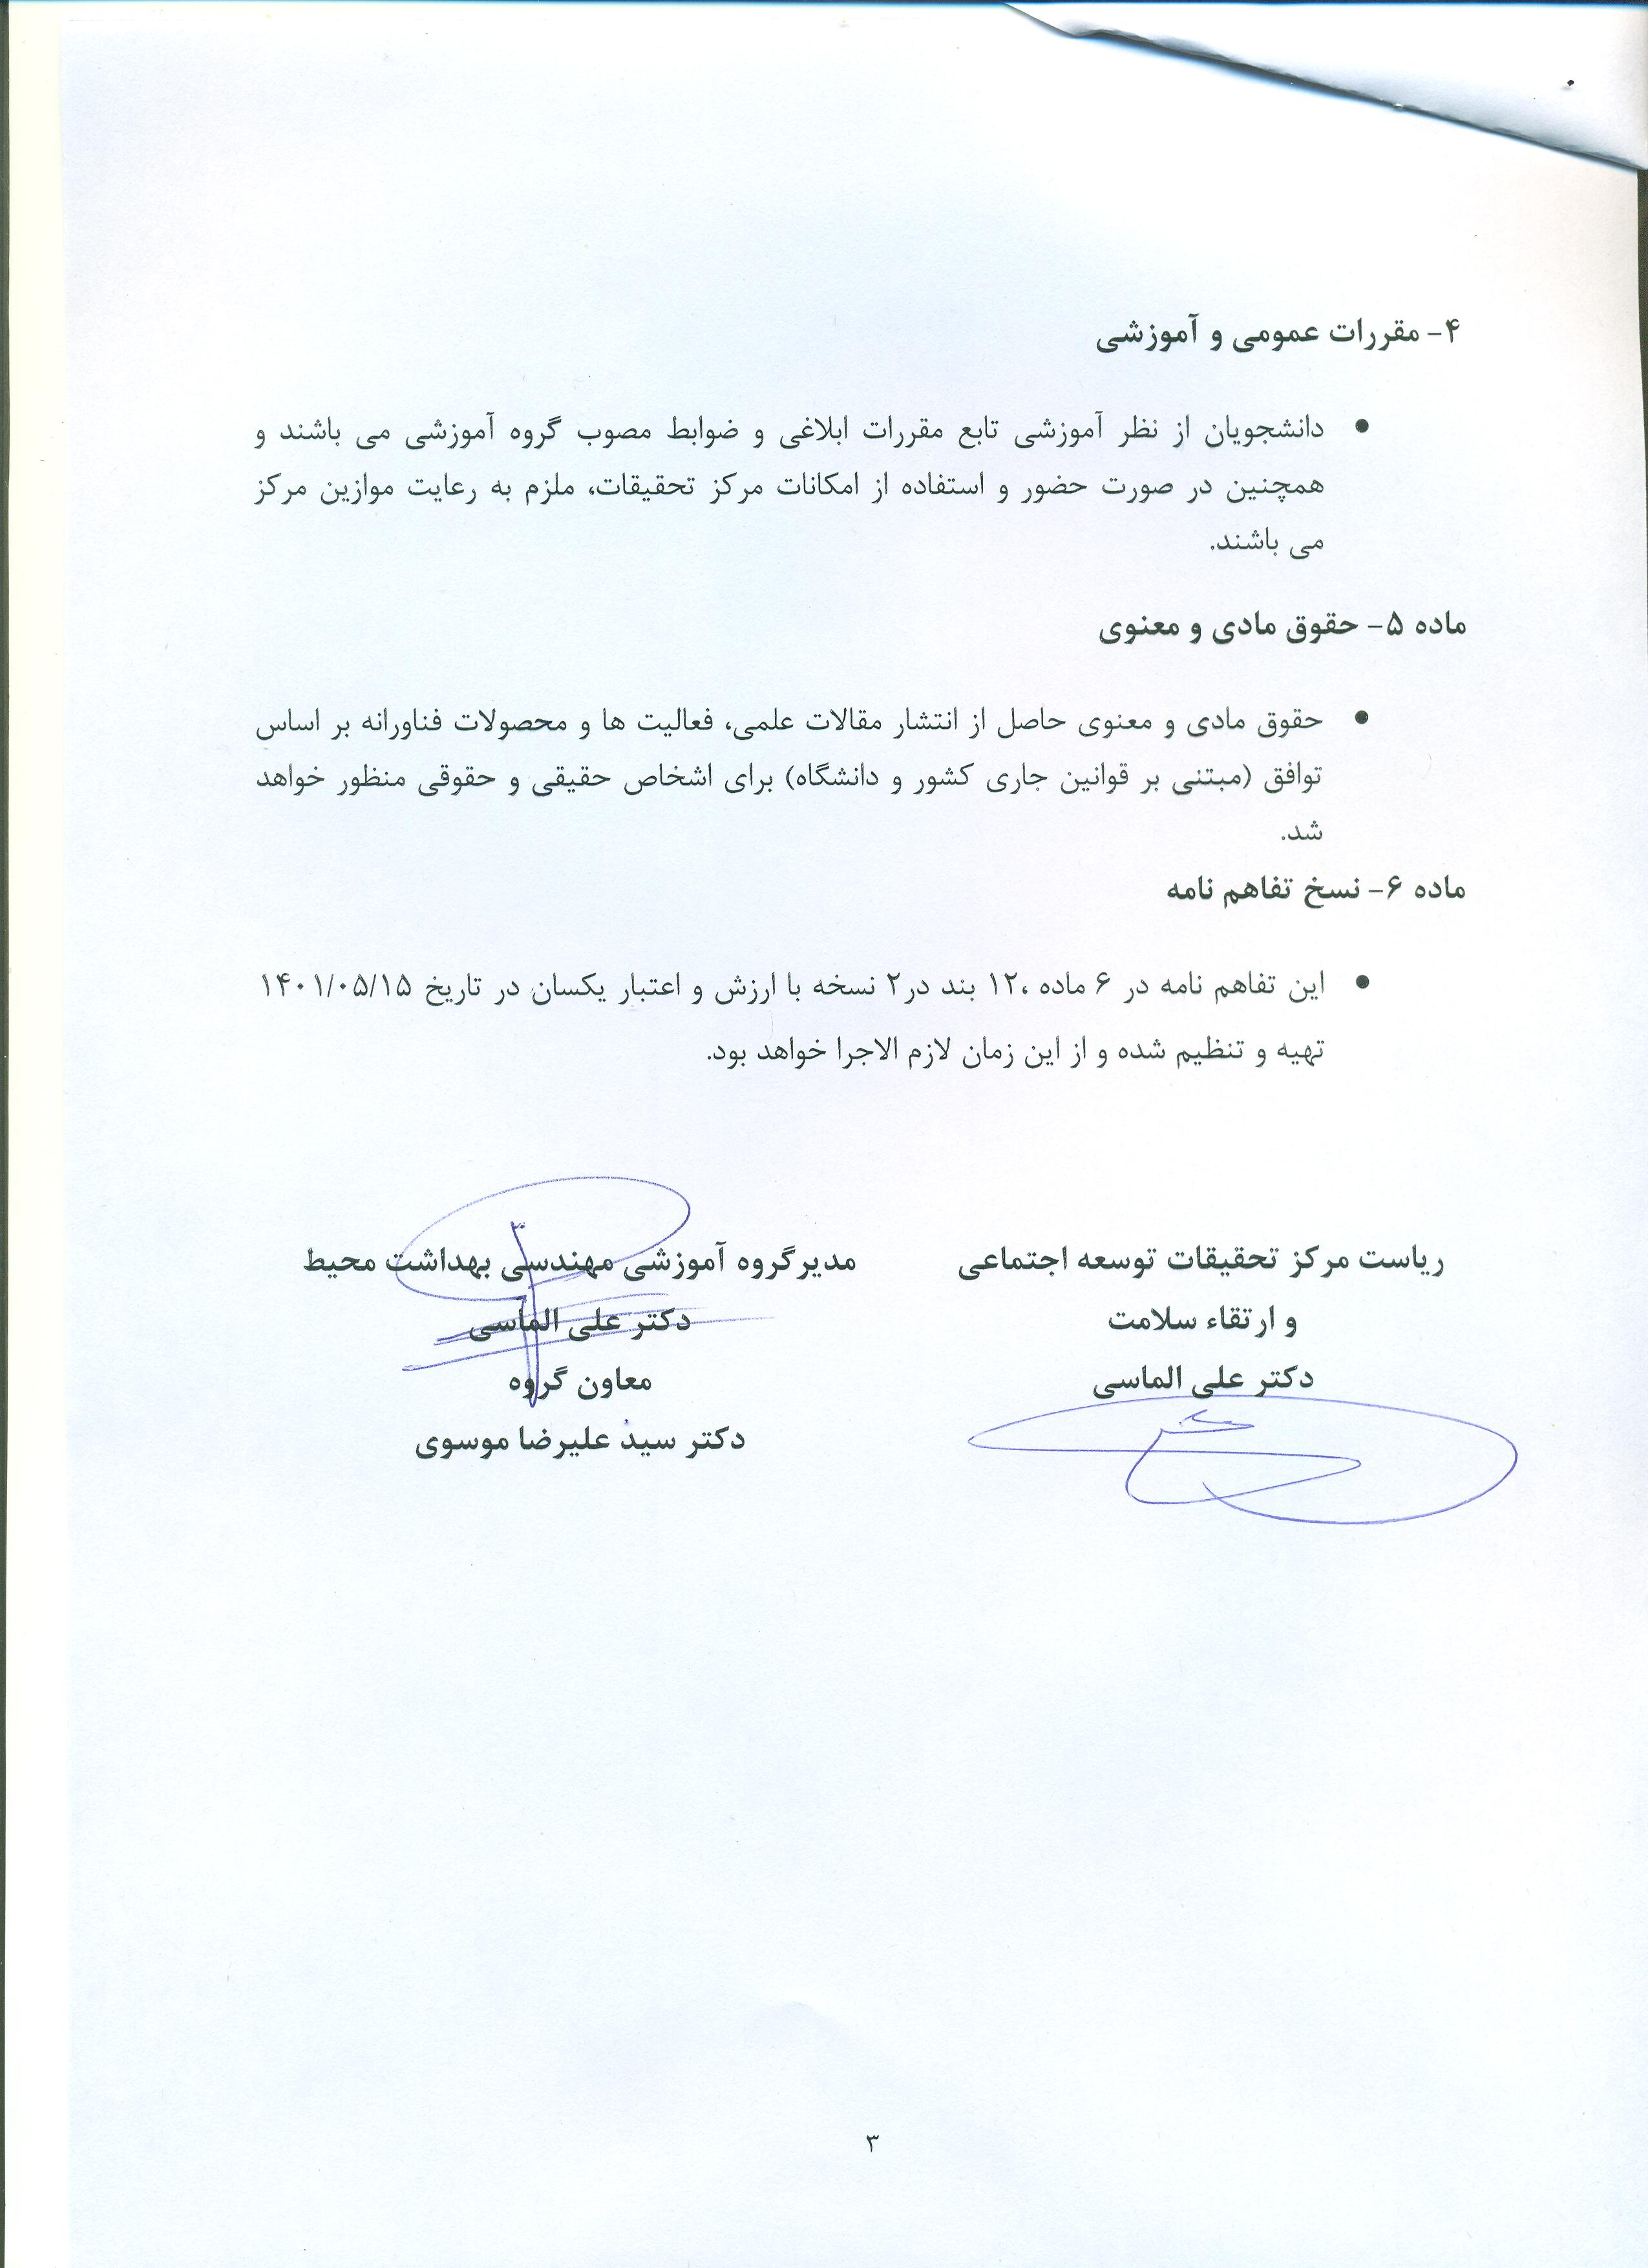 ۴- مقررات عمومی و آموزشی
• دانشجویان از نظر آموزشی تابع مقررات ابلاغی و ضوابط مصوب گروه آموزشی می باشند و
همچنین در صورت حضور و استفاده از امکانات مرکز تحقیقات، ملزم به رعایت موازین مرکز
می باشند.
ماده ۵- حقوق مادی و معنوی
• حقوق مادی و معنوی حاصل از انتشار مقالات علمی، فعالیت ها و محصولات فناورانه بر اساس
توافق (مبتنی بر قوانین جاری کشور و دانشگاه) برای اشخاص حقیقی و حقوقی منظور خواهد
شد.
ماده ۶- نسخ تفاهم نامه
• این تفاهم نامه در ۶ ماده ،۱۲ بند در۲ نسخه با ارزش و اعتبار یکسان در تاریخ ۱۴۰۱/۰۵/۱۵
تهیه و تنظیم شده و از این زمان لازم الاجرا خواهد بود.
ریاست مرکز تحقیقات توسعه اجتماعی
و ارتقاء سلامت
دکتر علی الماسی
مدیرگروه آموزشی مهندسی بهداشت محیط
دکتر علی الماسی
معاون گروه
دکتر سید علیرضا موسوی
۳